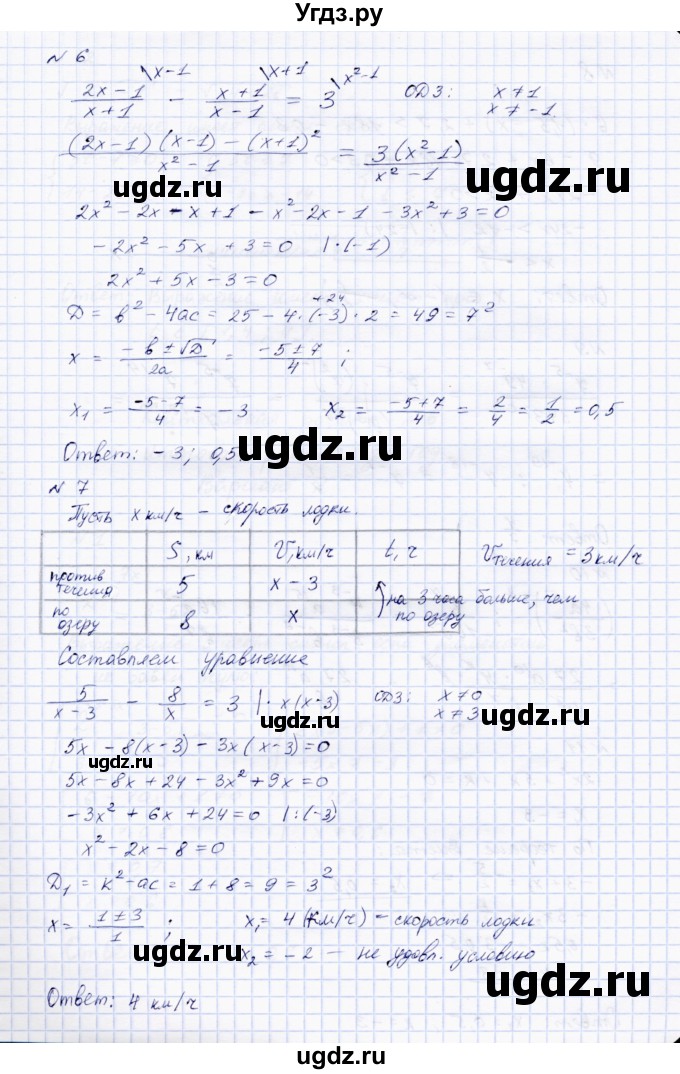 Угдз.ру
№ 6
\x-1 \x+1 \x²-1
(2x-1)/(x+1) - (x+1)/(x-1) = 3 ОДЗ: x≠1
x≠-1.
((2x-1)(x-1)-(x+1)²)/(x²-1) = 3(x²-1)/(x²-1)
ugdz.ru ugdz.ru
2x²-2x-x+1-x²-2x-1-3x²+3=0
-2x²-5x+3=0 |·(-1)
2x²+5x-3=0
+24
D = b²-4ac = 25-4·(-3)·2 = 49 = 7²
x = (-b±√D)/2a = (-5±7)/4 ;
x₁ = (-5-7)/4 = -3 x₂ = (-5+7)/4 = 2/4 = 1/2 = 0,5
Ответ: -3; 0,5
ugdz.ru ugdz.ru
№ 7
Пусть x км/ч - скорость лодки.
S, км V, км/ч t, ч Vтечения = 3 км/ч
против течения 5 x-3 на 3 часа больше, чем по озеру
по озеру 8 x
Составляем уравнение
5/(x-3) - 8/x = 3 |·x(x-3) ОДЗ: x≠0
x≠3
ugdz.ru ugdz.ru
5x-8(x-3)-3x(x-3)=0
5x-8x+24-3x²+9x=0
-3x²+6x+24=0 |:(-3)
ugdz.ru ugdz.ru
x²-2x-8=0
D₁ = k²-ac = 1+8 = 9 = 3²
x = (1±3)/1 ; x₁ = 4 (км/ч) - скорость лодки
x₂ = -2 - не удовл. условию
ugdz.ru ugdz.ru
Ответ: 4 км/ч
ugdz.ru
ugdz.ru